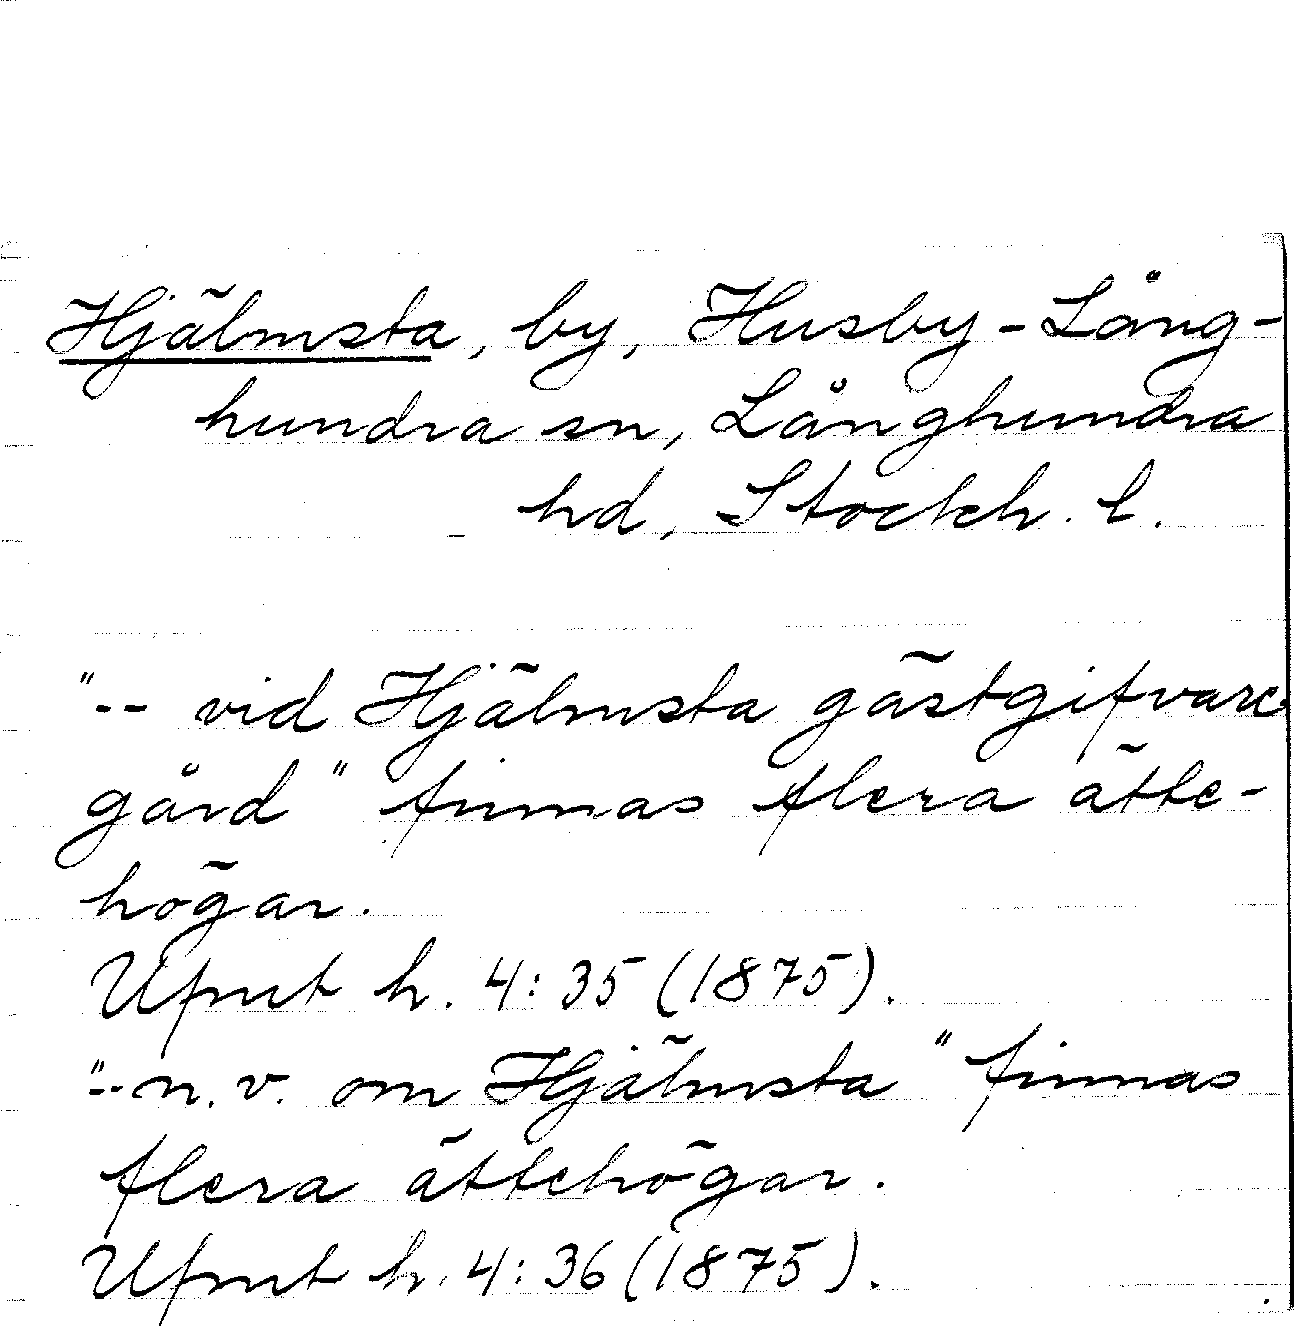 Hjälmsta, by, Husby-Lång-
hundra sn, Långhundra
hd, Stockh. l.
"-- vid Hjälmsta gästgifvare-
gård" finnas flera ätte-
högar.
Ufmt h. 4:35 (1875).
"--n.v. om Hjälmsta" finnas
flera ättehögar.
Ufmt h. 4:36 (1875).